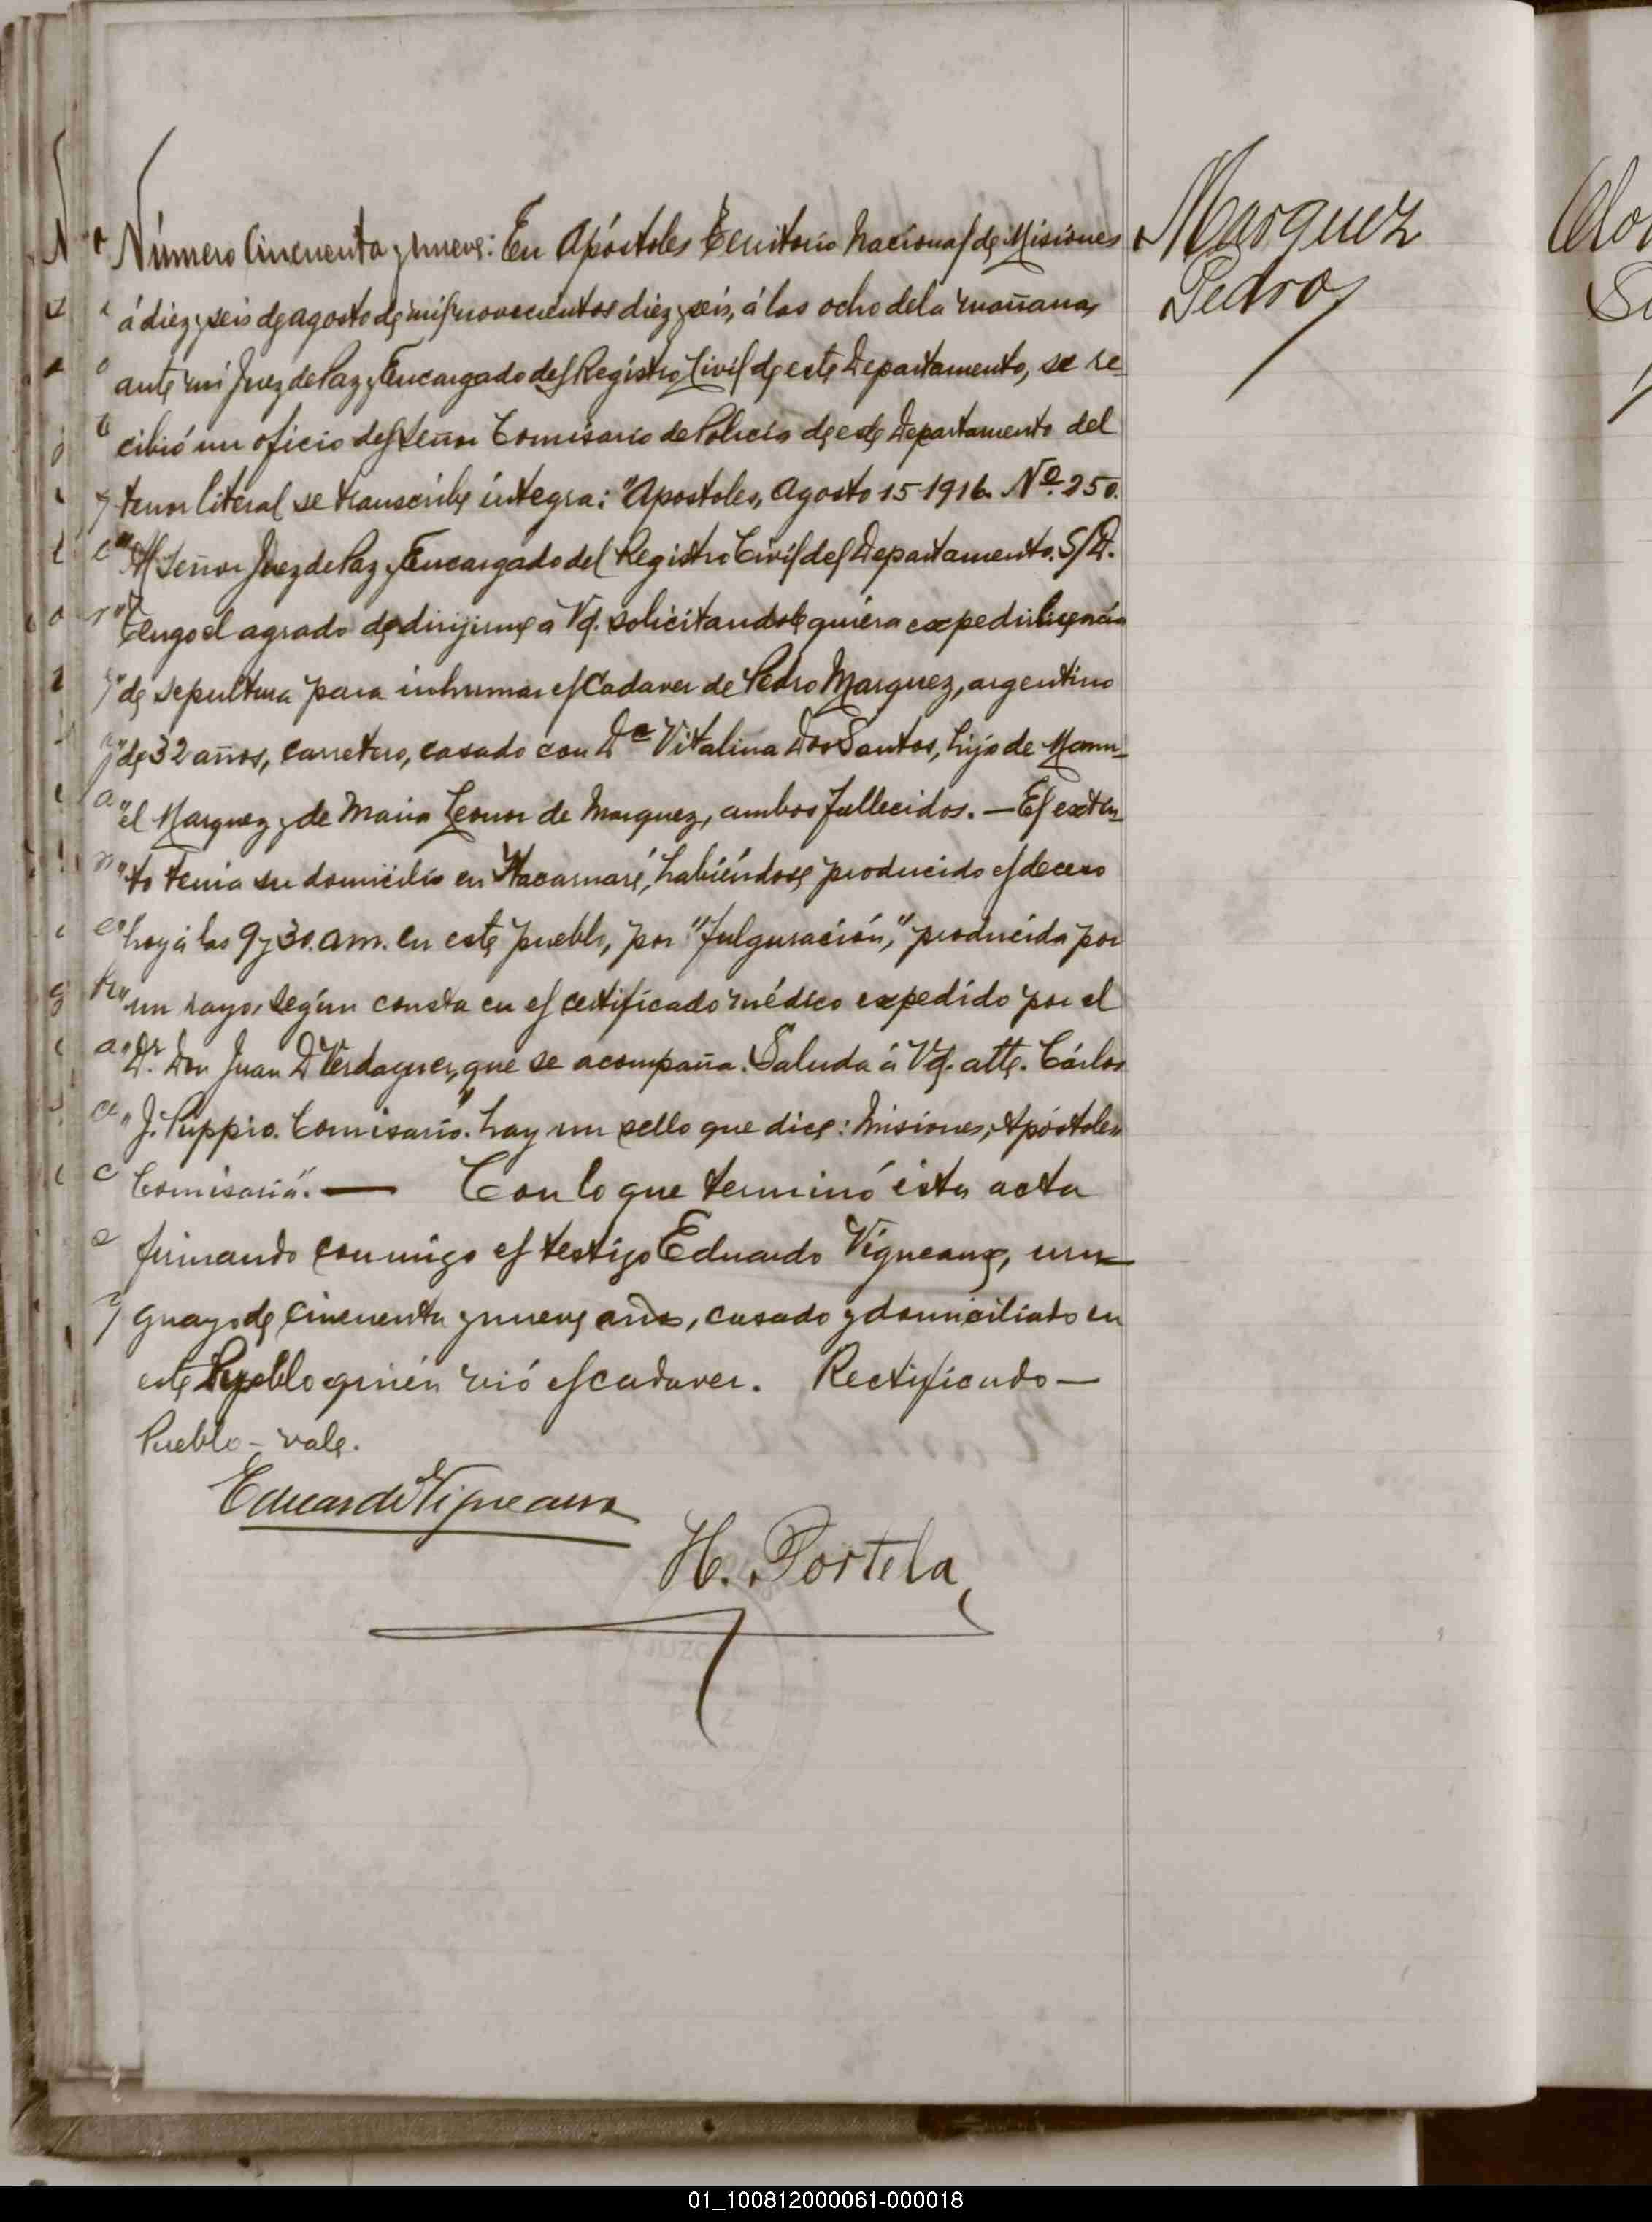 Número Cincuenta y nueve: En Apóstoles Territorio Nacional de Misiones
á diez y seis de agosto de mil novecientos diez y seis, á las ocho de la mañana,
ante mi Juez de Paz y Encargado del Registro Civil de este Departamento, se re-
cibió un oficio del Señor Comisario de Policía de este Departamento del
tenor literal se transcribe íntegra: "Apostoles, Agosto 15-1916. Nº. 250.
"Al Señor Juez de Paz y Encargado del Registro Civil del Departamento. S/D.
"Tengo el agrado de dirijirme a Vd. solicitandole quiera expedir licencia
"de sepultura para inhumar el Cadaver de Pedro Marquez, argentino
"de 32 años, carretero, casado con Dª Vitalina Dos Santos, hijo de Manu-
"el Marquez y de Maria Leonor de Marquez, ambos fallecidos. — El extin-
"to tenia su domicilio en Itacaruaré, habiéndose producido el deceso
"hoy á las 9 y 30. a.m. en este pueblo, por "fulguración," producida por
"un rayo, según consta en el certificado médico expedido por el
"Dr. Don Juan D Verdaguer, que se acompaña. Saluda á Vd. atte. Cárlos
"J. Puppio. Comisario." hay un sello que dice: Misiones, Apóstoles
Comisaria". — Con lo que terminó esta acta
firmando conmigo el testigo Eduardo Vigneaux, uru-
guayo de cincuenta y nueve años, casado y domiciliado en
este Pueblo quién vió el cadaver. Rectificado —
Pueblo - vale.
Eduardo Vigneaux
H. Portela
Marquez
Pedro
01_100812000061-000018